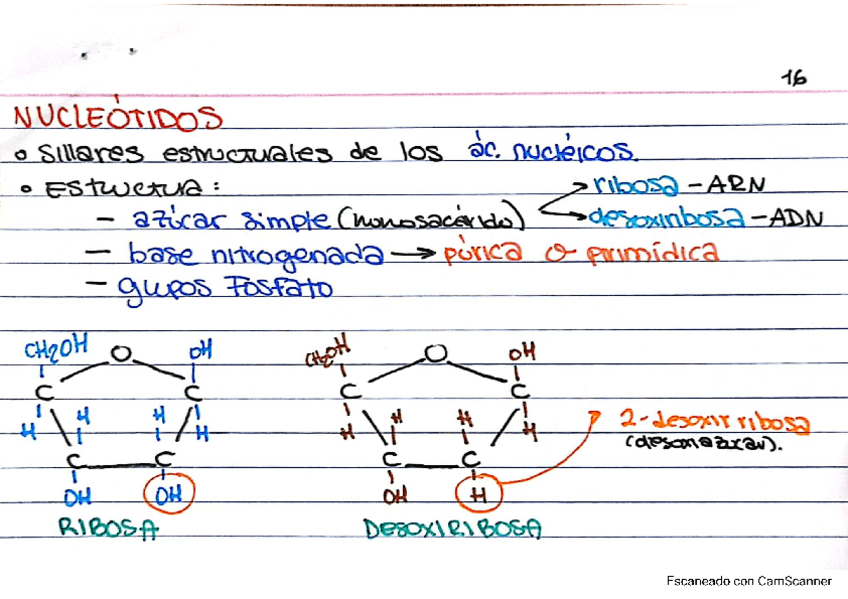 16
NUCLEÓTIDOS
• Sillares estructurales de los ác. nucléicos.
• Estructura:
→ ribosa - ARN
- azúcar simple (monosacárido) → desoxirribosa - ADN
- base nitrogenada → púrica o pirimídica
- grupos fosfato
CH2OH O OH
C C
H H H H
C C
OH OH
RIBOSA
CH2OH O OH
C C
H H H H
C C
OH H
DESOXIRIBOSA
2-desoxirribosa
(desoxiazúcar).
Escaneado con CamScanner